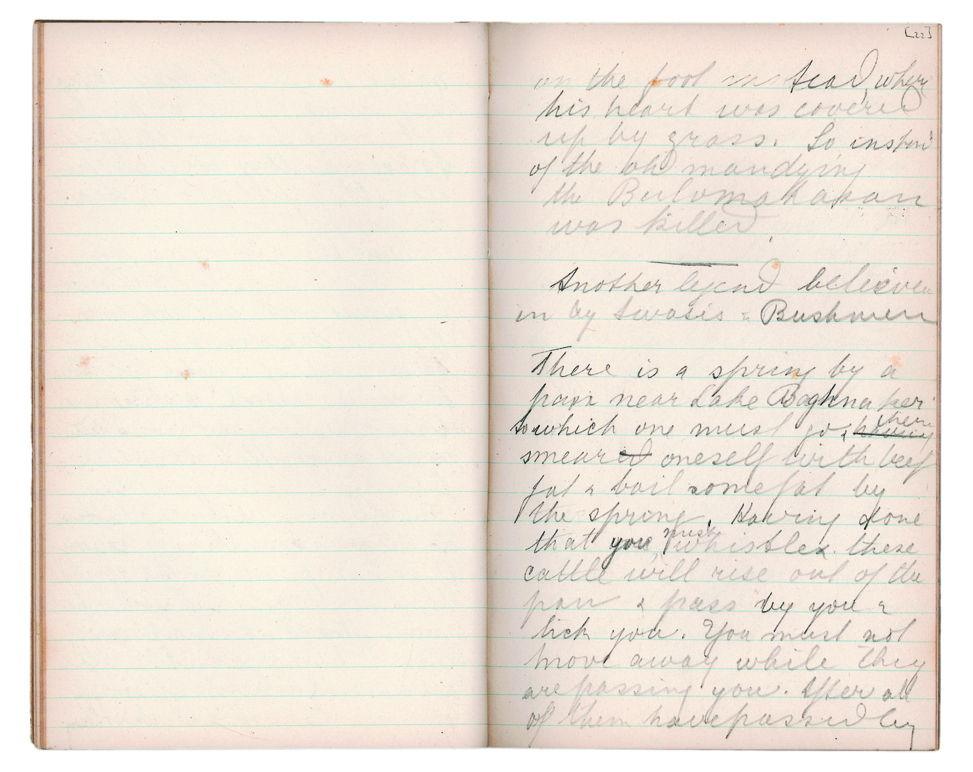 [22]
on the foot instead, where
his heart was covered
up by grass. So instead
of the old man dying
the Bulomakakan
was killed.
Another legend believed
in by Swasis & Bushmen
There is a spring by a
pan near Lake
to which one must go & there
smear oneself with beef
fat & boil some fat by
the spring. Having done
that you must whistle. these
cattle will rise out of the
pan & pass by you &
lick you. You must not
move away while they
are passing you. After all
of them have passed by